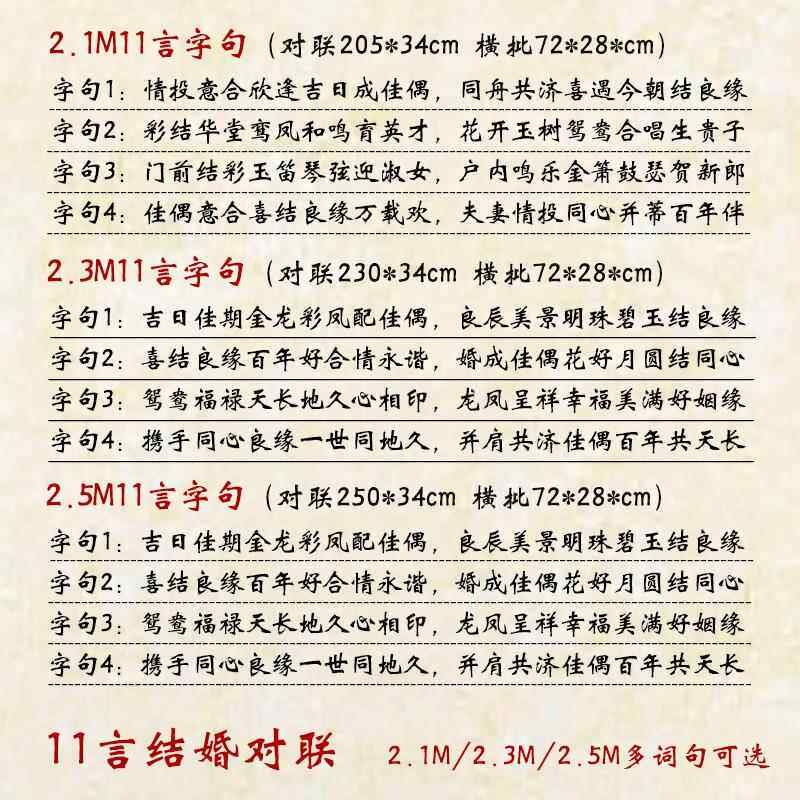 2.1M11言字句（对联205*34cm 横批72*28*cm）
字句1：情投意合欣逢吉日成佳偶，同舟共济喜遇今朝结良缘
字句2：彩结华堂鸾凤和鸣育英才，花开玉树鸳鸯合唱生贵子
字句3：门前结彩玉笛琴弦迎淑女，户内鸣乐金箫鼓瑟贺新郎
字句4：佳偶意合喜结良缘万载欢，夫妻情投同心并蒂百年伴
2.3M11言字句（对联230*34cm 横批72*28*cm）
字句1：吉日佳期金龙彩凤配佳偶，良辰美景明珠碧玉结良缘
字句2：喜结良缘百年好合情永谐，婚成佳偶花好月圆结同心
字句3：鸳鸯福禄天长地久心相印，龙凤呈祥幸福美满好姻缘
字句4：携手同心良缘一世同地久，并肩共济佳偶百年共天长
2.5M11言字句（对联250*34cm 横批72*28*cm）
字句1：吉日佳期金龙彩凤配佳偶，良辰美景明珠碧玉结良缘
字句2：喜结良缘百年好合情永谐，婚成佳偶花好月圆结同心
字句3：鸳鸯福禄天长地久心相印，龙凤呈祥幸福美满好姻缘
字句4：携手同心良缘一世同地久，并肩共济佳偶百年共天长
11言结婚对联 2.1M/2.3M/2.5M多词句可选